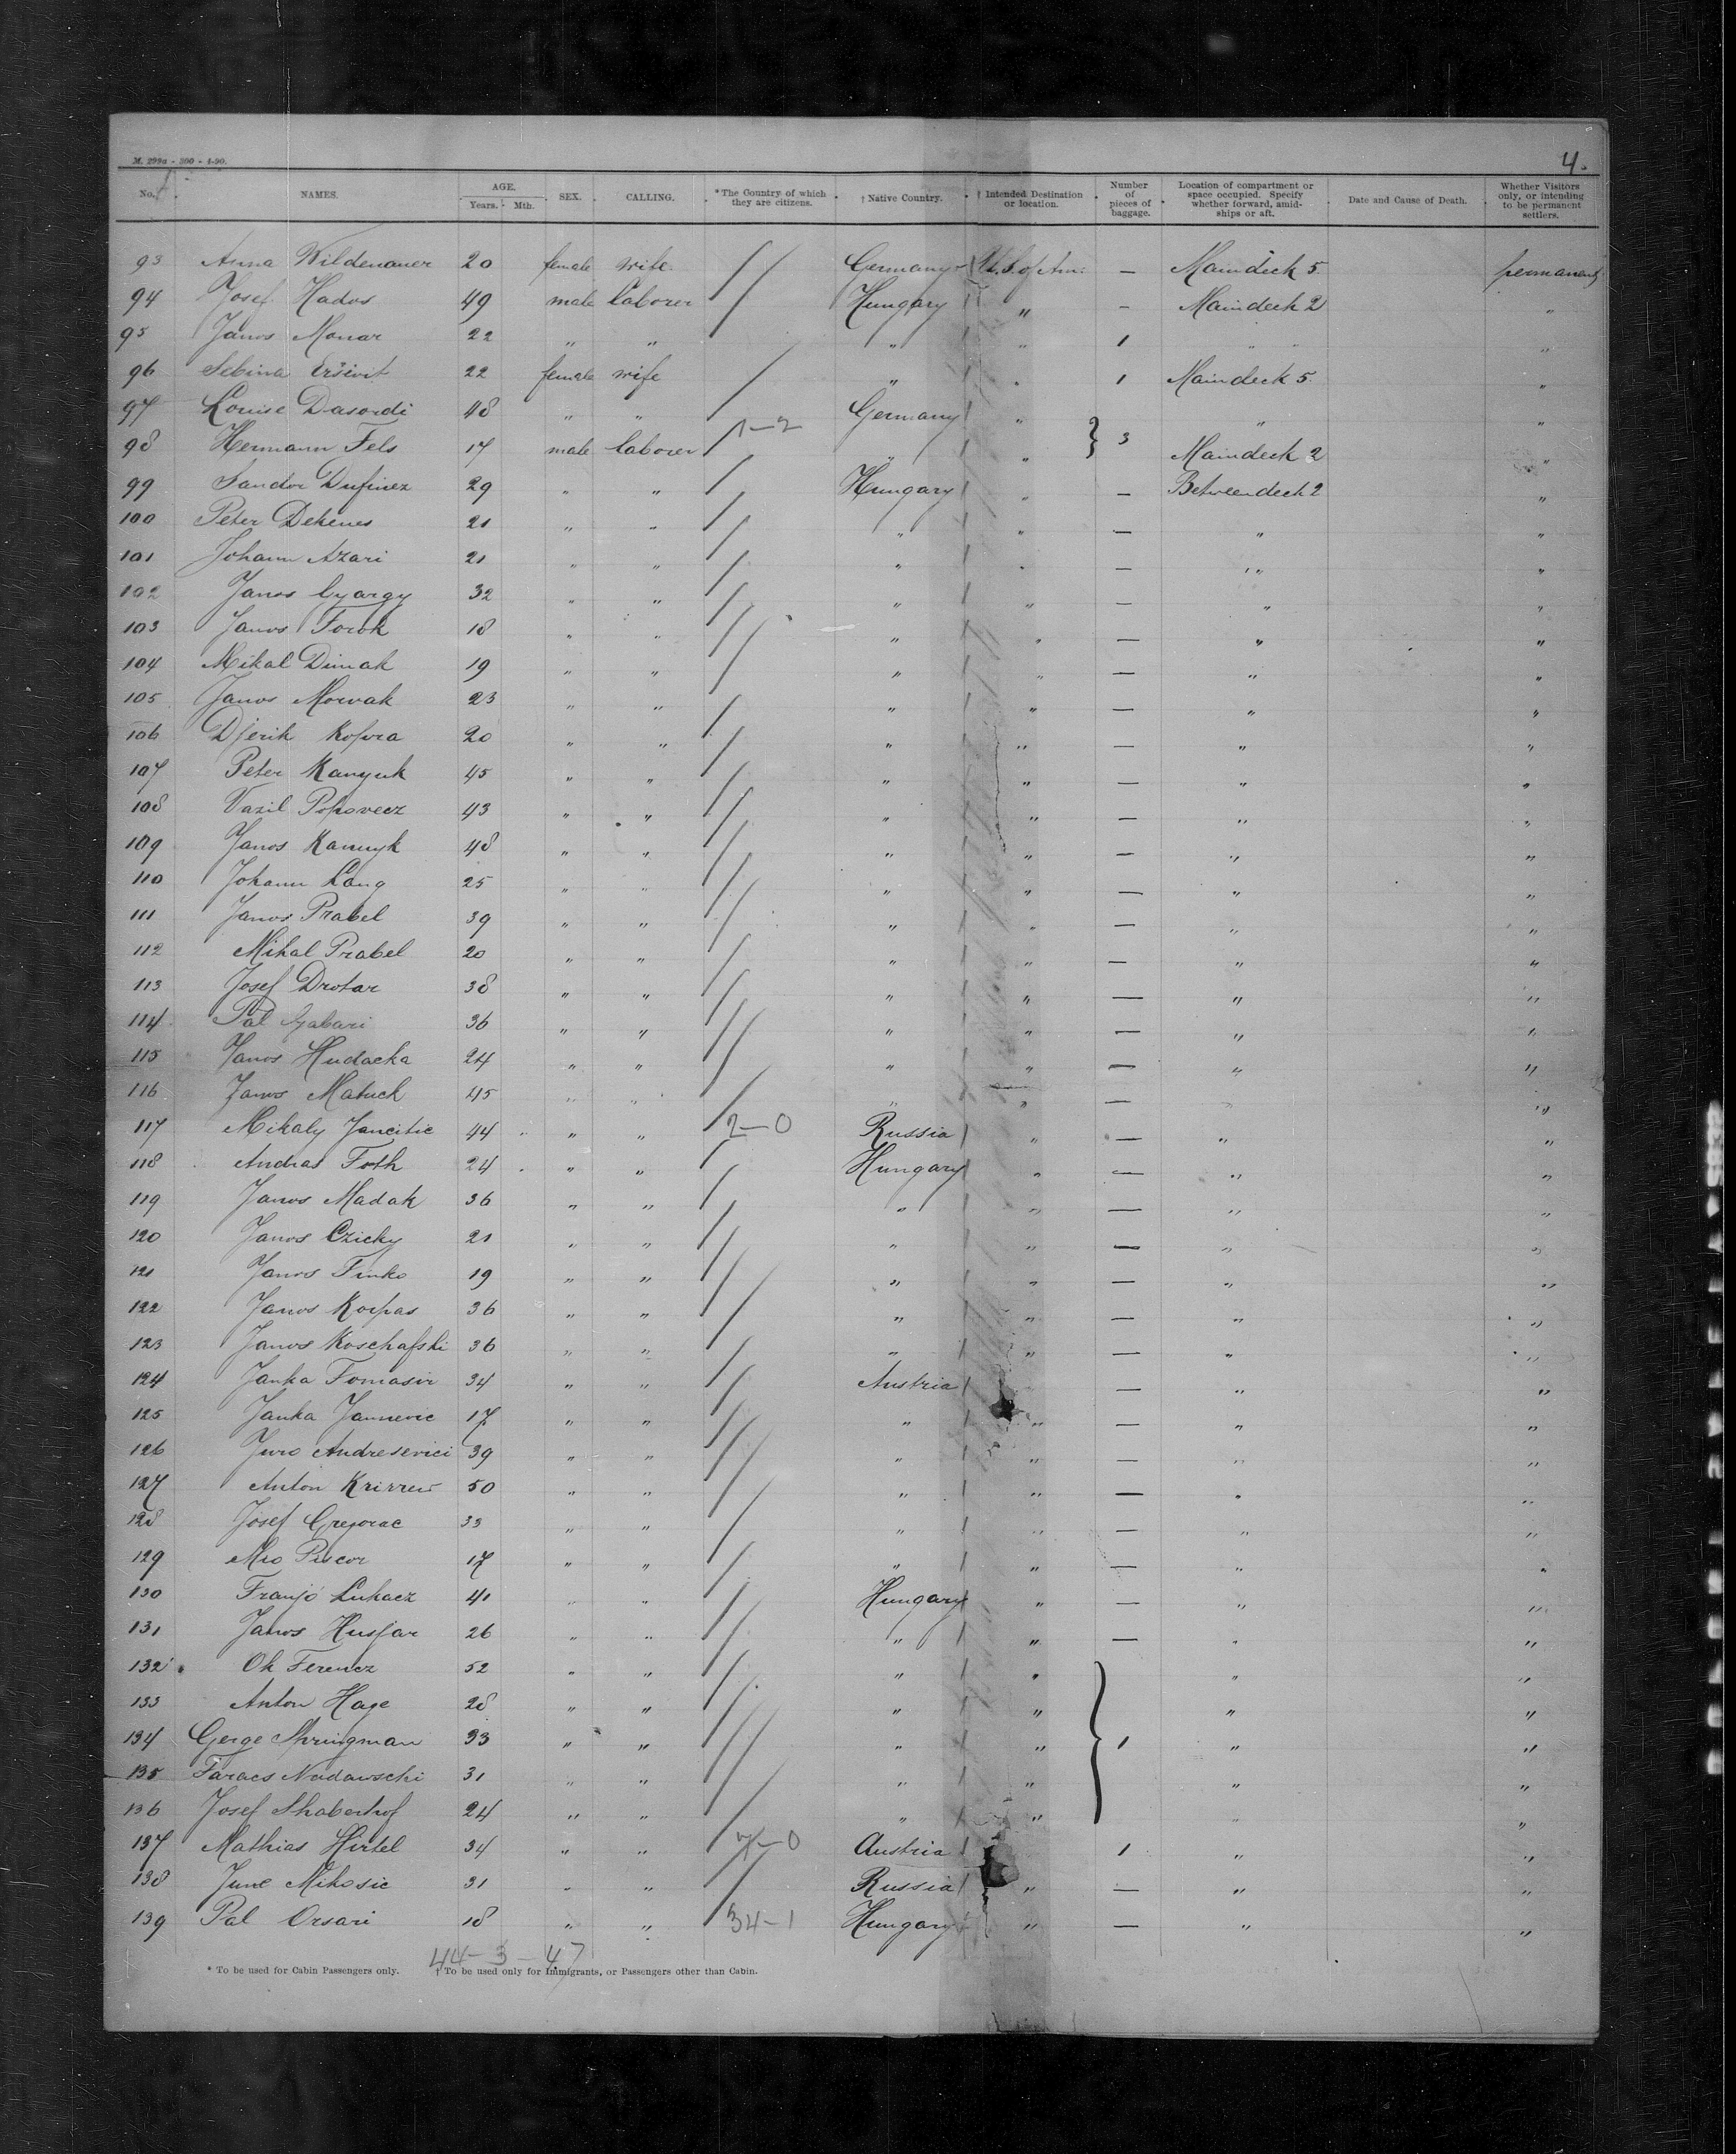 M. 299a - 300 - 4-90.
4.
No. NAMES. AGE. Years. Mth. SEX. CALLING. *The Country of which they are citizens. †Native Country. †Intended Destination or location. Number of pieces of baggage. Location of compartment or space occupied. Specify whether forward, amid-ships or aft. Date and Cause of Death. Whether Visitors only, or intending to be permanent settlers.
93 Anna Wildenauer 20 female wife Germany U.S. of Am. — Maindeck 5 permanent
94 Josef Hados 49 male laborer Hungary " — Maindeck 2 "
95 Janos Monar 22 " " " " 1 " " "
96 Sebina 22 female wife " " 1 Maindeck 5 "
97 Louise Dasordi 48 " " Germany " " "
1–2
98 Hermann Fels 17 male laborer " " } 3 Maindeck 2 "
99 Sandor 29 " " Hungary " — Betweendeck 2 "
100 Peter Dekenes 21 " " " " — " "
101 Johann Azari 21 " " " " — " "
102 Janos Gyorgy 32 " " " " — " "
103 Janos Torok 18 " " " " — " "
104 Mihal Dimak 19 " " " " — " "
105 Janos Morvak 23 " " " " — " "
106 Djerik 20 " " " " — " "
107 Peter Kanyuk 45 " " " " — " "
108 Vazil Popovecz 43 " " " " — " "
109 Janos Kamuyk 48 " " " " — " "
110 Johann Lang 25 " " " " — " "
111 Janos Prabel 39 " " " " — " "
112 Mihal Prabel 20 " " " " — " "
113 Josef Drotar 38 " " " " — " "
114 Pal Gabari 36 " " " " — " "
115 Janos Hudacka 24 " " " " — " "
116 Janos Matuch 45 " " " " — " "
117 Mihaly Jancitic 44 " " 2–0 Russia " — " "
118 Andras Toth 24 " " Hungary " — " "
119 Janos Madak 36 " " " " — " "
120 Janos Czicky 21 " " " " — " "
121 Janos Tinko 19 " " " " — " "
122 Janos Korpas 36 " " " " — " "
123 Janos Koschafski 36 " " " " — " "
124 Janka Tomasir 34 " " Austria — " "
125 Janka Jannevic 17 " " " " — " "
126 Juro Andresevici 39 " " " " — " "
127 Anton 50 " " " " — " "
128 Josef Gregorac 33 " " " " — " "
129 Mio Piscor 17 " " " " — " "
130 Franjo Lukacz 41 " " Hungary " — " "
131 Janos Husjar 26 " " " " — " "
132 Ok Ferencz 52 " " " " " "
133 Anton Hage 28 " " " " " "
134 Gerge Springman 33 " " " " } 1 " "
135 Taracs Nadawschi 31 " " " " " "
136 Josef Shabenhof 24 " " " " " "
137 Mathias Hirtel 34 " " 7–0 Austria 1 " "
138 June Mikosic 31 " " Russia " — " "
139 Pal Orsari 18 " " 34–1 Hungary " — " "
44–3–47
* To be used for Cabin Passengers only. † To be used only for Immigrants, or Passengers other than Cabin.